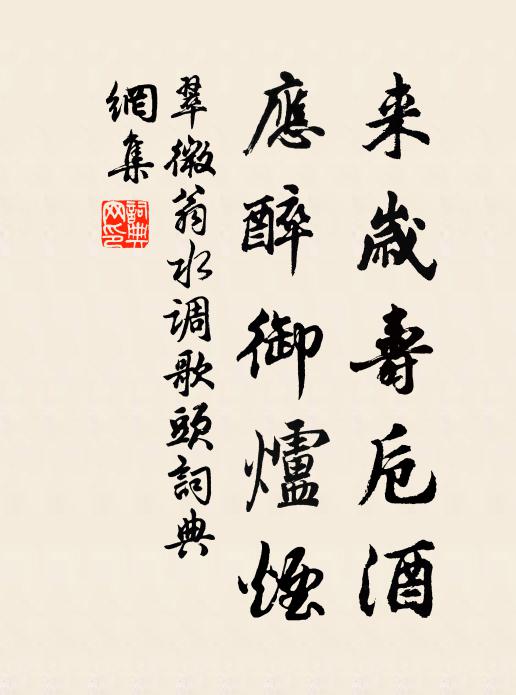 来歲壽卮酒
應醉御爐煙
翠微翁水调歌頭詞典
網集
詞典網印